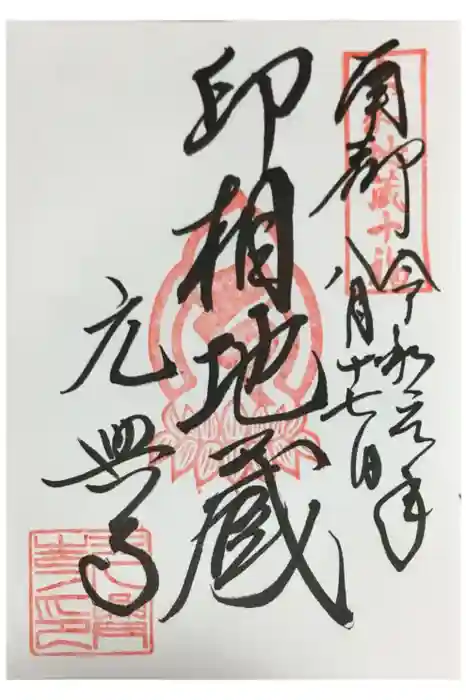 南都
令和元年
八月十七日
印相地蔵
元興寺